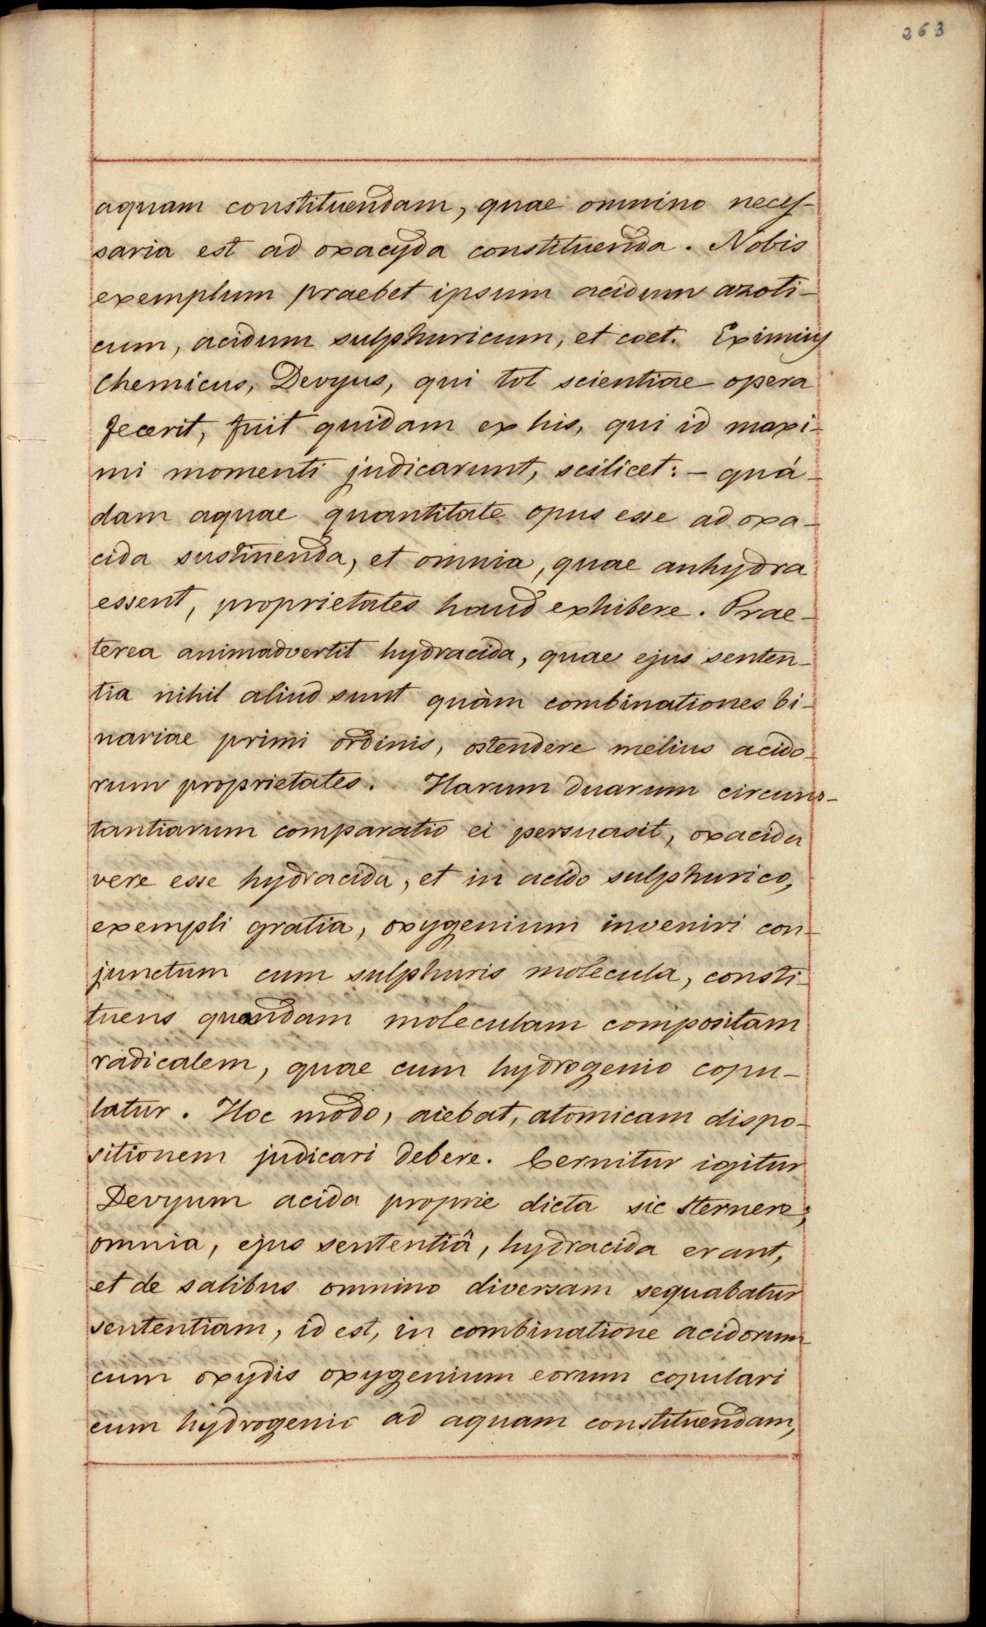 263
aquam constituendam, quae omnino neces-
saria est ad oxacyda constituenda. Nobis
exemplum praebet ipsum acidum azoti-
cum, acidum sulphuricum, et coet. Eximius
Chemicus, Devyus, qui tot scientiae opera
fecerit, fuit quidam ex his, qui id maxi-
mi momenti judicarunt, scilicet: - quá-
dam aquae quantitate opus esse ad oxa-
cida sustinenda, et omnia, quae anhydra
essent, proprietates haud exhibere. Prae-
terea animadvertit hydracida, quae ejus senten-
tia nihil aliud sunt quàm combinationes bi-
nariae primi ordinis, ostendere melius acido-
rum proprietates. Harum duarum circums-
tantiarum comparatio ei persuasit, oxacida
vere esse hydracida, et in acido sulphurico,
exempli gratia, oxygenium inveniri con-
junctum cum sulphuris molecula, consti-
tuens quandam moleculam compositam
radicalem, quae cum hydrogenio copu-
latur. Hoc modo, aiebat, atomicam dispo-
sitionem judicari debere. Cernitur igitur
Devyum acida proprie dicta sic sternere;
omnia, ejus sententiâ, hydracida erant,
et de salibus omnino diversam sequabatur
sententiam, id est, in combinatione acidorum
cum oxydis oxygenium eorum copulari
cum hydrogenio ad aquam constituendam,